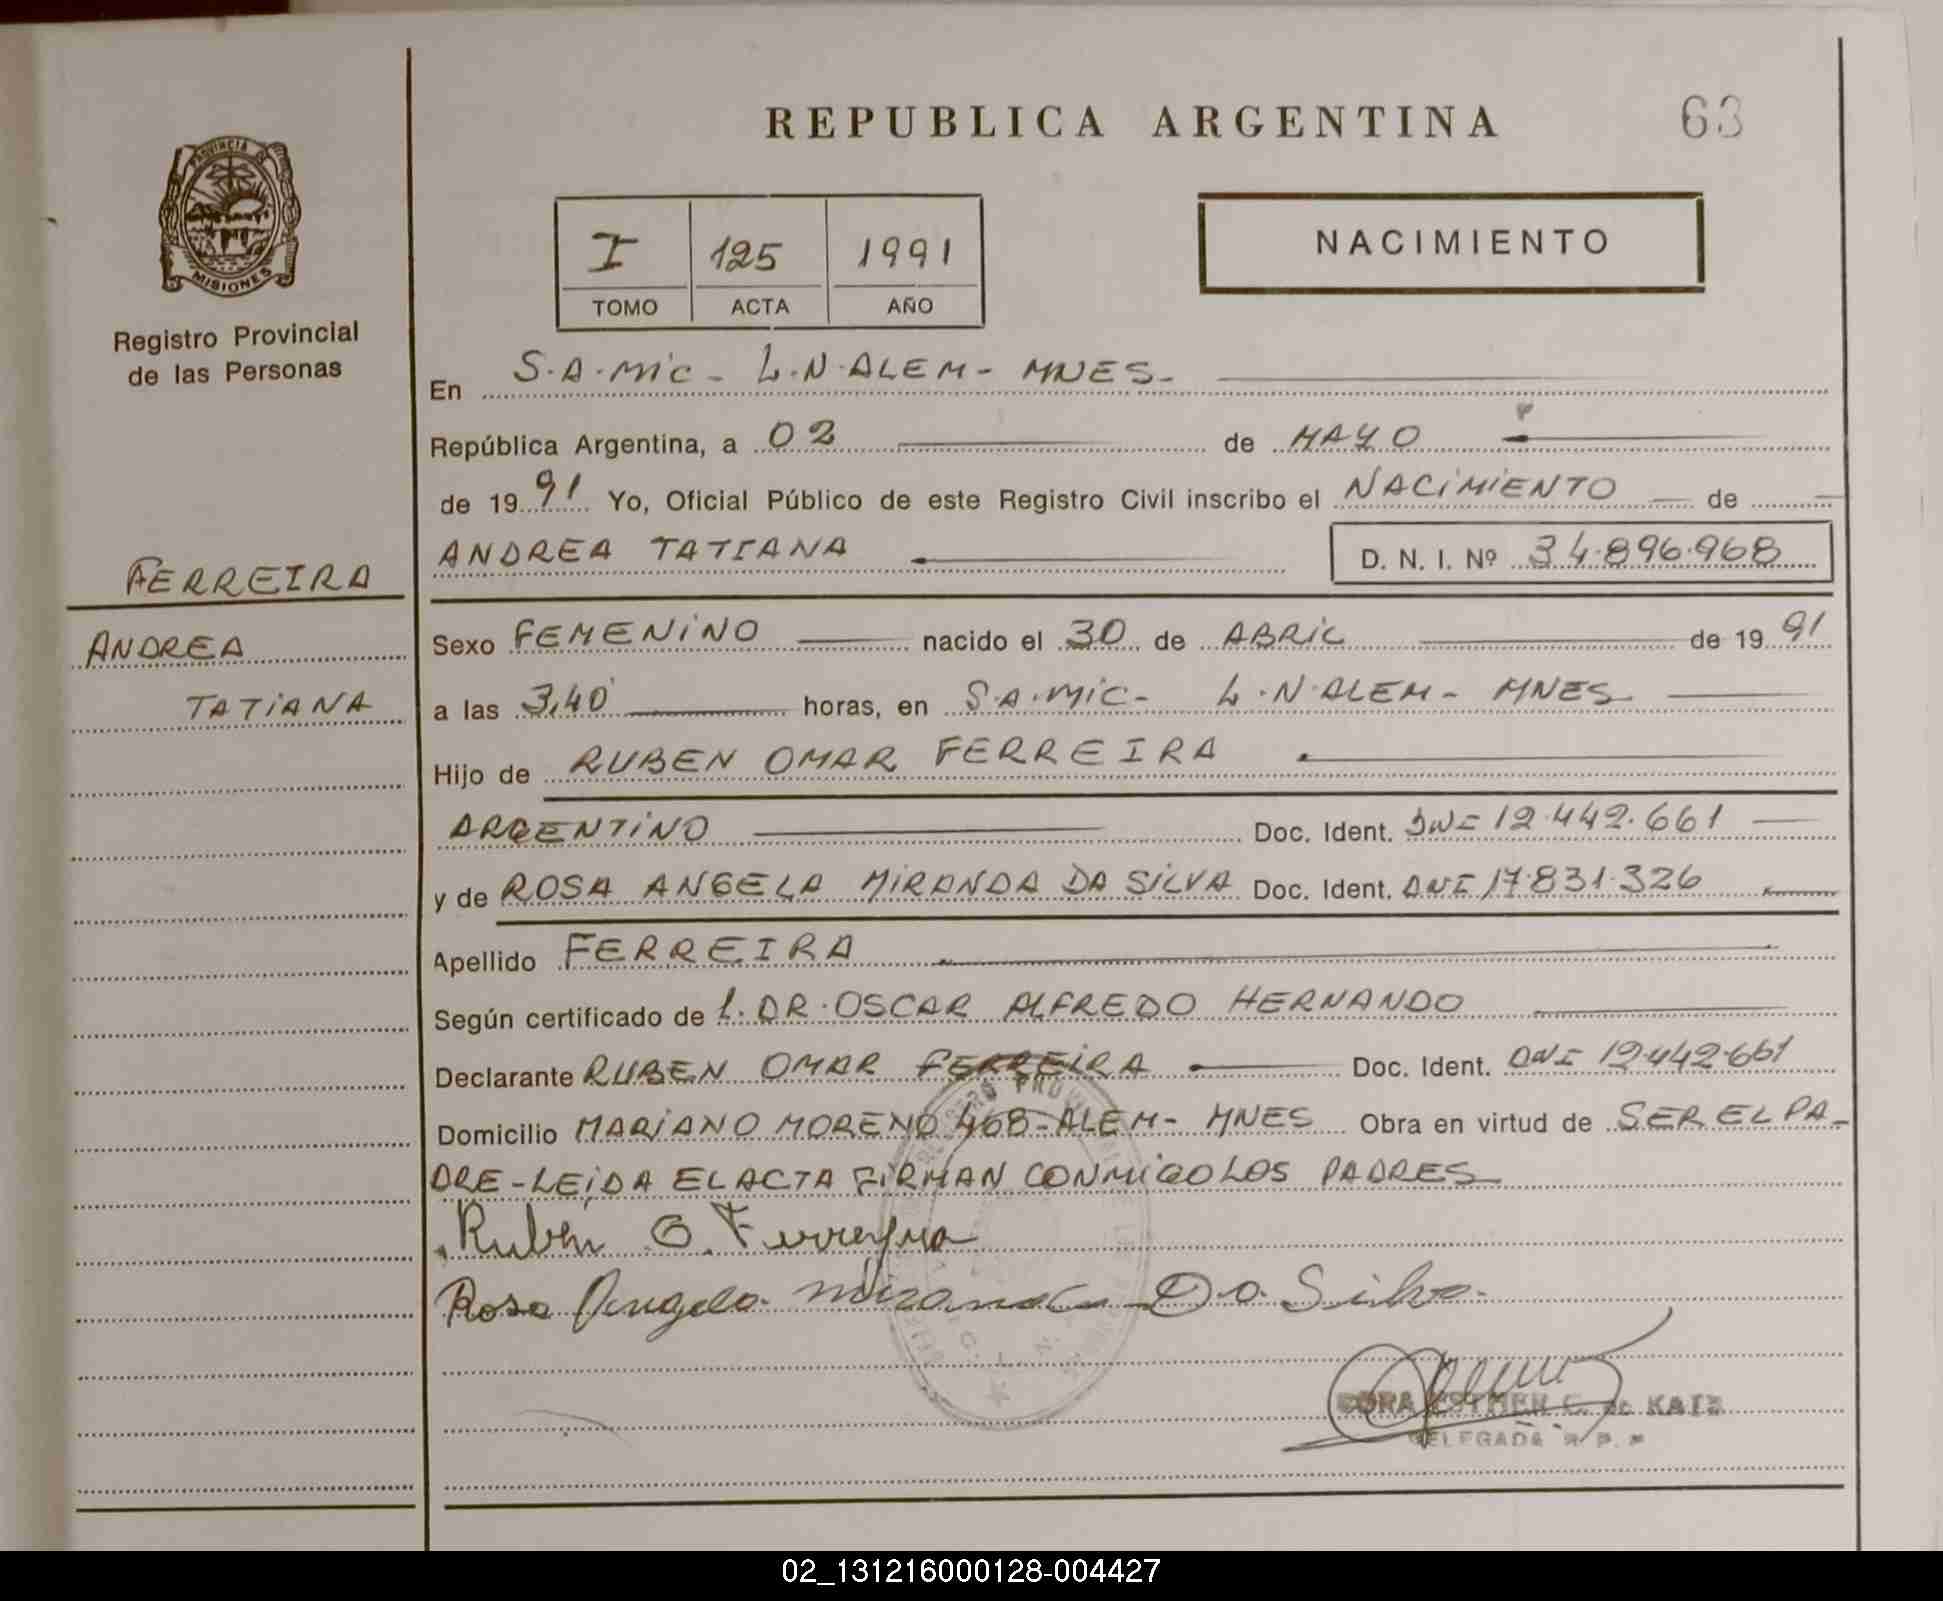 REPUBLICA ARGENTINA
63
PROVINCIA DE
MISIONES
Registro Provincial
de las Personas
I 125 1991
TOMO ACTA AÑO
NACIMIENTO
En S.A.MiC - L.N.ALEM - MNES -
República Argentina, a 02 de MAYO
de 1991 Yo, Oficial Público de este Registro Civil inscribo el NACiMiENTO de
ANDREA TATIANA D. N. I. Nº 34.896.968
FERREIRA
ANDREA
TATiANA
Sexo FEMENiNO nacido el 30 de ABRiL de 1991
a las 3,40 horas, en S.A.MiC - L.N.ALEM - MNES
Hijo de RUBEN OMAR FERREIRA
ARGENTiNO Doc. Ident. DNI 12.442.661
y de ROSA ANGELA MiRANDA DA SiLVA Doc. Ident. DNI 17.831.326
Apellido FERREIRA
Según certificado de L. DR. OSCAR ALFREDO HERNANDO
Declarante RUBEN OMAR FERREiRA Doc. Ident. DNI 12.442.661
Domicilio MARiANO MORENO 468 - ALEM - MNES Obra en virtud de SER EL PA-
DRE - LEiDA EL ACTA FiRMAN CONMiGO LOS PADRES
Ruben O. Ferreyra
Rosa Angela Miranda Da Silva
DORA ESTHER C. de KATZ
DELEGADA R. P. P.
02_131216000128-004427